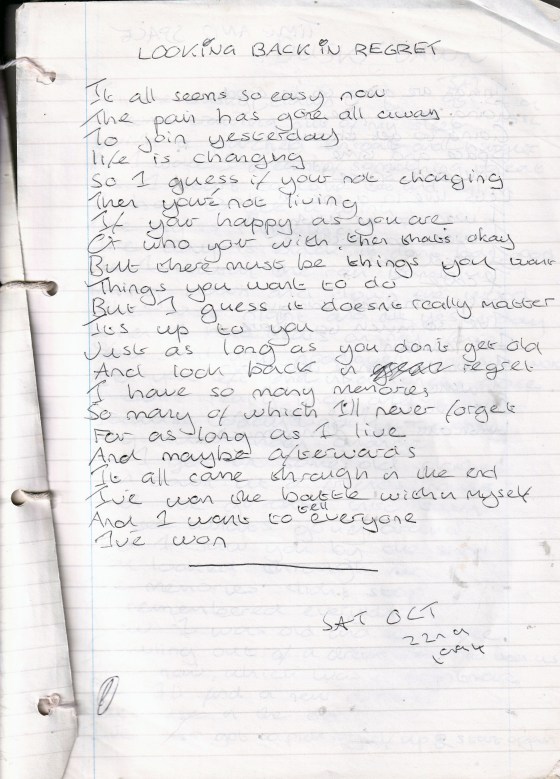 LOOKING BACK IN REGRET
It all seems so easy now
The pain has gone all away
To join yesterday
life is changing
So I guess if your not changing
Then your'e not living
If your happy as you are
Or who your with then thats okay
But there must be things you want
Things you want to do
But I guess it doesn't really matter
It's up to you
Just as long as you don't get old
And look back in regret
I have so many memories
So many of which I'll never forget
For as long as I live
And maybe afterwards
It all came through in the end
I've won the battle within myself
And I want to tell everyone
I've won
SAT OCT
22nd